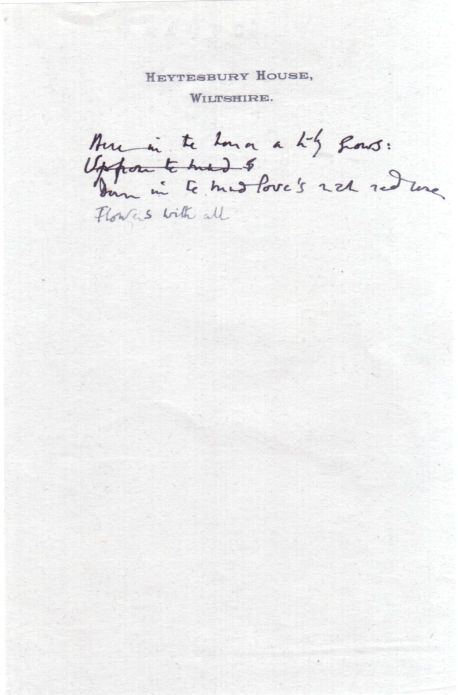 HEYTESBURY HOUSE,
WILTSHIRE.
Here in the a lily grows:
Up from the mud
Down in the mud love's rich red rose
Flowers with all